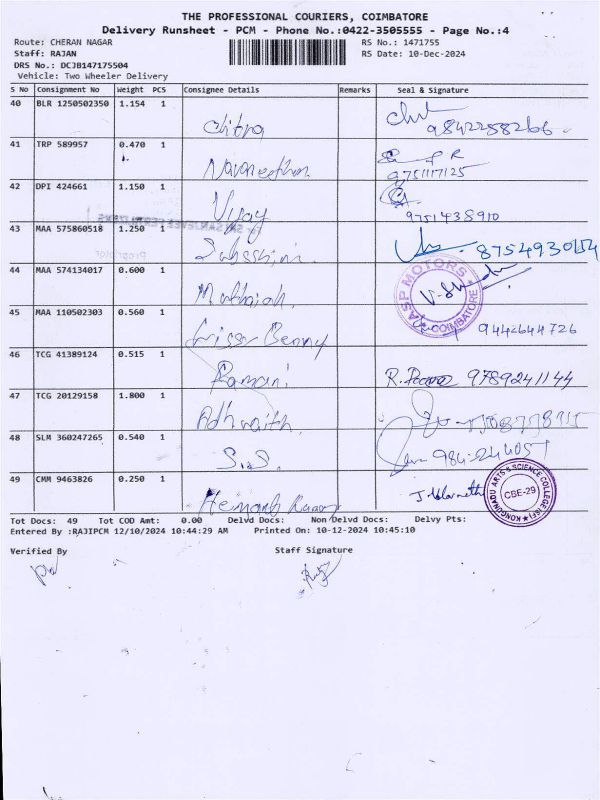 THE PROFESSIONAL COURIERS, COIMBATORE
Delivery Runsheet - PCM - Phone No.:0422-3505555 - Page No.:4
Route: CHERAN NAGAR
RS No.: 1471755
Staff: RAJAN
RS Date: 10-Dec-2024
DRS No.: DCJB147175504
Vehicle: Two Wheeler Delivery
S No Consignment No Weight PCS Consignee Details Remarks Seal & Signature
40 BLR 1250502350 1.154 1
Chitra
41 TRP 589957 0.470 1
Navaneethan
9751117125
42 DPI 424661 1.150 1
Vijay
9751438910
43 MAA 575860518 1.250 1
44 MAA 574134017 0.600 1
Muthaiah
ASP MOTORS
COIMBATORE
45 MAA 110502303 0.560 1
9442644726
46 TCG 41389124 0.515 1
Ramani
9789241144
47 TCG 20129158 1.800 1
Adhvaith
48 SLM 360247265 0.540 1
S.S.
49 CMM 9463826 0.250 1
Hemanth Kumar
KONGUNADU ARTS & SCIENCE COLLEGE
CBE-29
Tot Docs: 49 Tot COD Amt: 0.00 Delvd Docs: Non Delvd Docs: Delvy Pts:
Entered By :RAJIPCM 12/10/2024 10:44:29 AM Printed On: 10-12-2024 10:45:10
Verified By Staff Signature